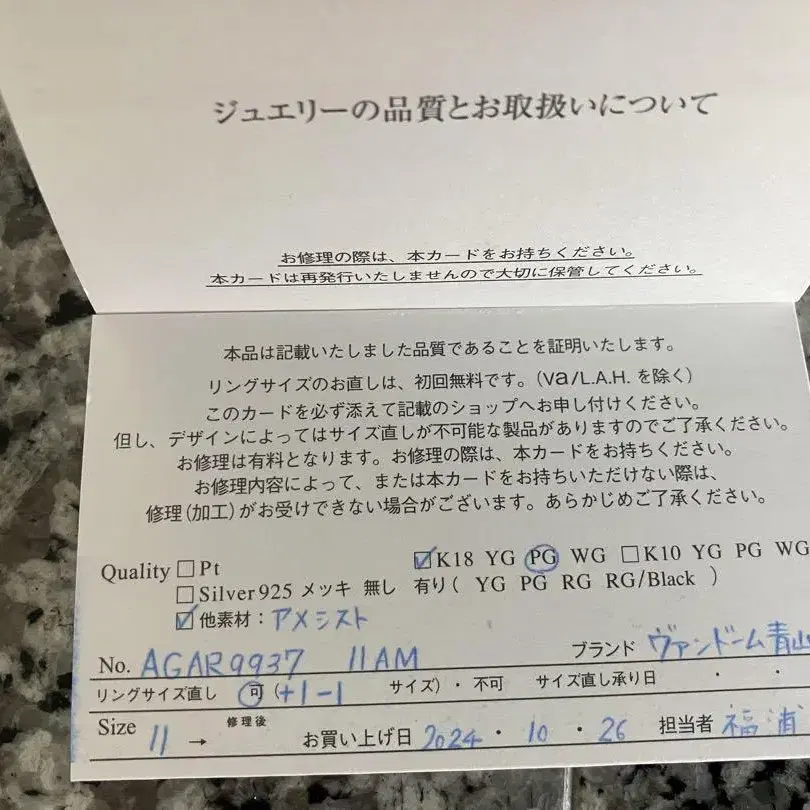 ジュエリーの品質とお取扱いについて
お修理の際は、本カードをお持ちください。
本カードは再発行いたしませんので大切に保管してください。
本品は記載いたしました品質であることを証明いたします。
リングサイズのお直しは、初回無料です。(Va/L.A.H. を除く)
このカードを必ず添えて記載のショップへお申し付けください。
但し、デザインによってはサイズ直しが不可能な製品がありますのでご了承ください。
お修理は有料となります。お修理の際は、本カードをお持ちください。
お修理内容によって、または本カードをお持ちいただけない際は、
修理(加工)がお受けできない場合がございます。あらかじめご了承ください。
Quality □Pt ☑K18 YG PG WG □K10 YG PG WG
□Silver925 メッキ 無し 有り( YG PG RG RG/Black )
☑他素材：アメシスト
No. AGAR9937 11AM ブランド ヴァンドーム青山
リングサイズ直し 可 (+1-1 サイズ)・不可 サイズ直し承り日 ・ ・
Size 11 → 修理後 お買い上げ日 2024・10・26 担当者 福浦